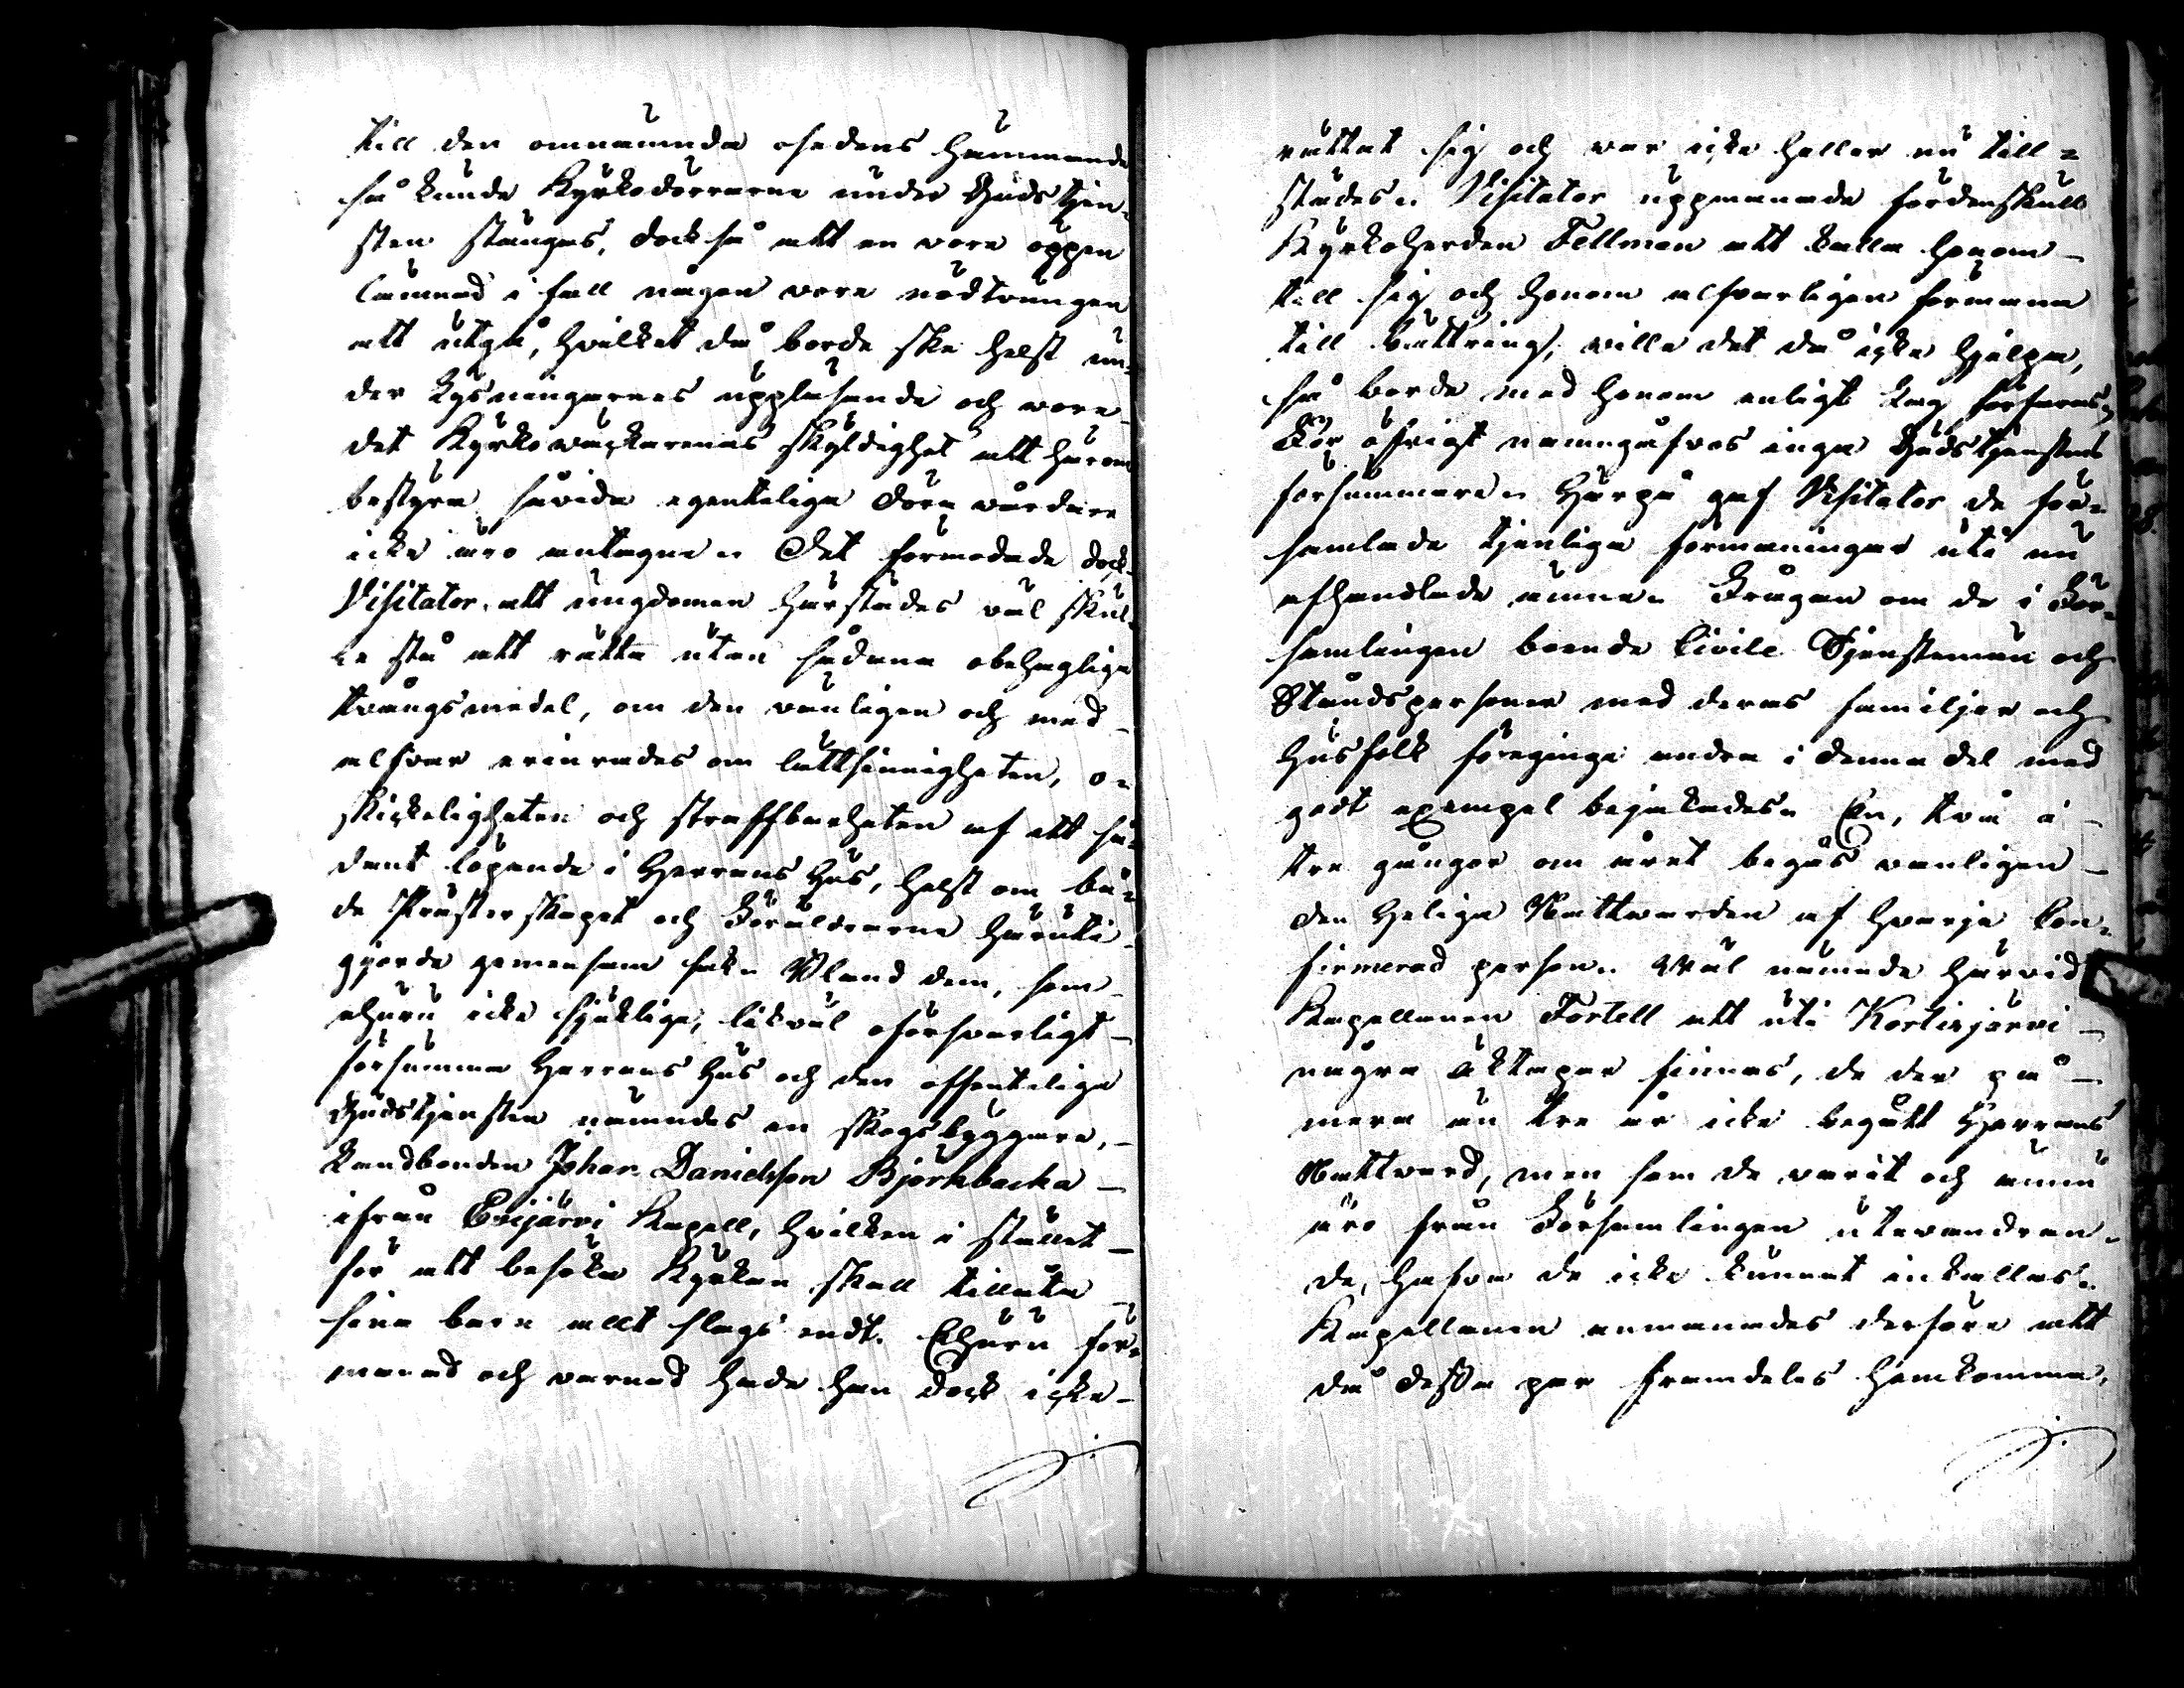 till den omnämnda osedens hämmande
så kunde Kyrkodörrarne under Gudstjen-
sten stängas, dock så att en vore öppen
lämnad i fall någon vore nödtvungen
att utgå, hvilket då borde ske helst un-
der Lysningarnes uppläsande och vore
det Kyrkowäcktarenas skyldighet att härom
bestyra såvida egenteliga Dörrvårdare
icke äro antagne. Det förmodade dock
Visitator, att ungdomen härstädes väl skul-
le stå att rätta utan sådana obehagliga
tvångsmedel, om den vänligen och med
alfvar erinrades om lättsinnigheten, o-
skickeligheten och straffbarheten af ett så-
dant löpande i Herrans Hus, helst om bå-
de Prästerskapet och Föräldrarne häruti
gjorde gemensam sak. Bland dem, som
ehuru icke sjuklige, likväl oförsvarligt
försumma Herrans Hus och den offenteliga
Gudstjensten nämndes en skogsbyggare,
Landbonden Johan Danielsson Björkbacka
ifrån Evijärvi Kapell, hvilken i stället
för att besöka Kyrkan skall tillåta
sina barn allt slags ondt. Ehuru för-
manad och varnad hade han dock icke
rättat sig och var icke heller nu till-
städes. Visitator uppmanade fördenskull
Kyrkoherden Fellman att kalla honom
till sig och honom alfvarligen förmana
till bättring; ville det då icke hjälpa,
så borde med honom enligt Lag förfaras.
För öfrigt namngåfvos inga Gudstjenstens
försummare. Härpå gaf Visitator de för-
samlade tjenliga förmaningar uti nu
afhandlade ämne. Frågan om de i För-
samlingen boende Civile Tjenstemän och
Ståndspersoner med deras familjer och
Husfolk föregingo andra i denna del med
godt exempel bejakades. En, två à
tre gånger om året begås vanligen
den Heliga Nattwarden af hvarje Con-
firmerad person. Wäl nämnde härvid
Kapellanen Fortell att uti Kortesjärvi
några äktapar finnas, de der på
mera än tre år icke begått Herrans
Nattvard, men som de varit och ännu
äro från Församlingen utevandran-
de, hafva de icke kunnat inkallas.
Kapellanen anmanades derföre att
då dessa par framdeles hemkomma,